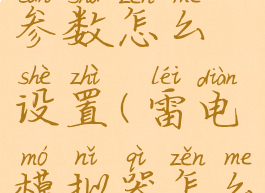 cān shù zěn me
参数怎么
shè zhì léi diàn
设置(雷电
mó nǐ qì zěn me
模拟器怎么